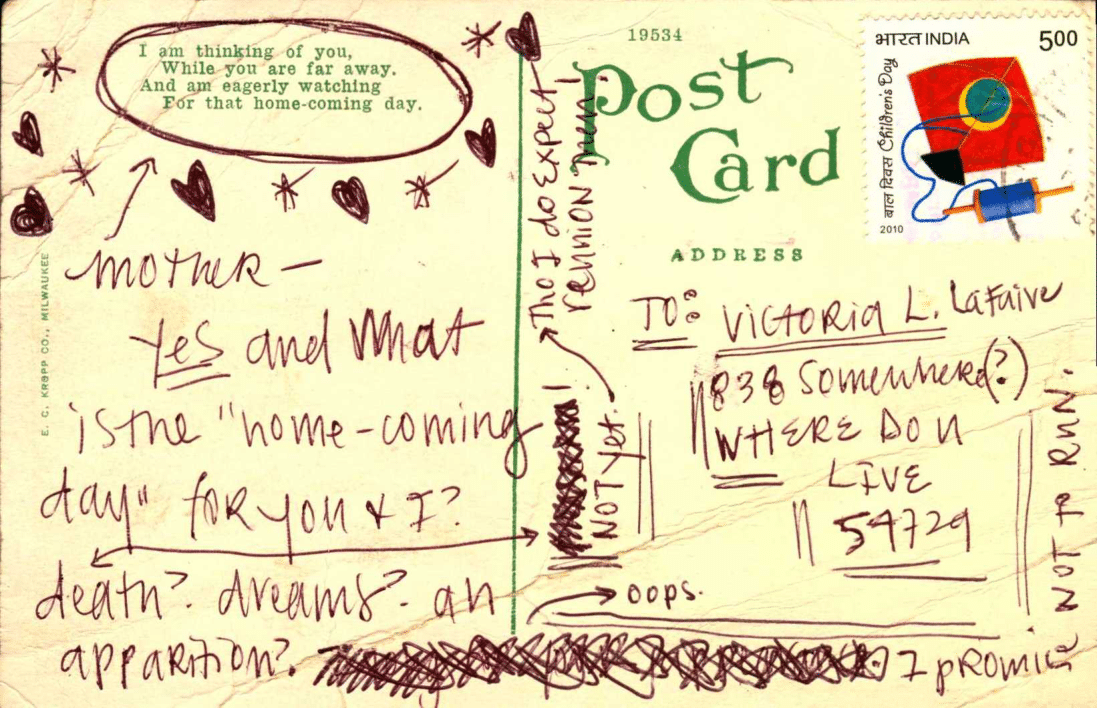 I am thinking of you,
While you are far away.
And am eagerly watching
For that home-coming day.
E. C. KROPP CO., MILWAUKEE
MOTHER —
YES and What
is the "home-coming
day" for you & I?
death? dreams? an
apparition?
I PROMISE
NOT TO RUN.
oops.
NOT yet.
Tho I do expect
reunion then!
19534
Post
Card
ADDRESS
TO: VICTORIA L. LaFaive
838 Somewhere(?)
WHERE DO U
LIVE
54729
भारत INDIA
500
बाल दिवस Children's Day
2010